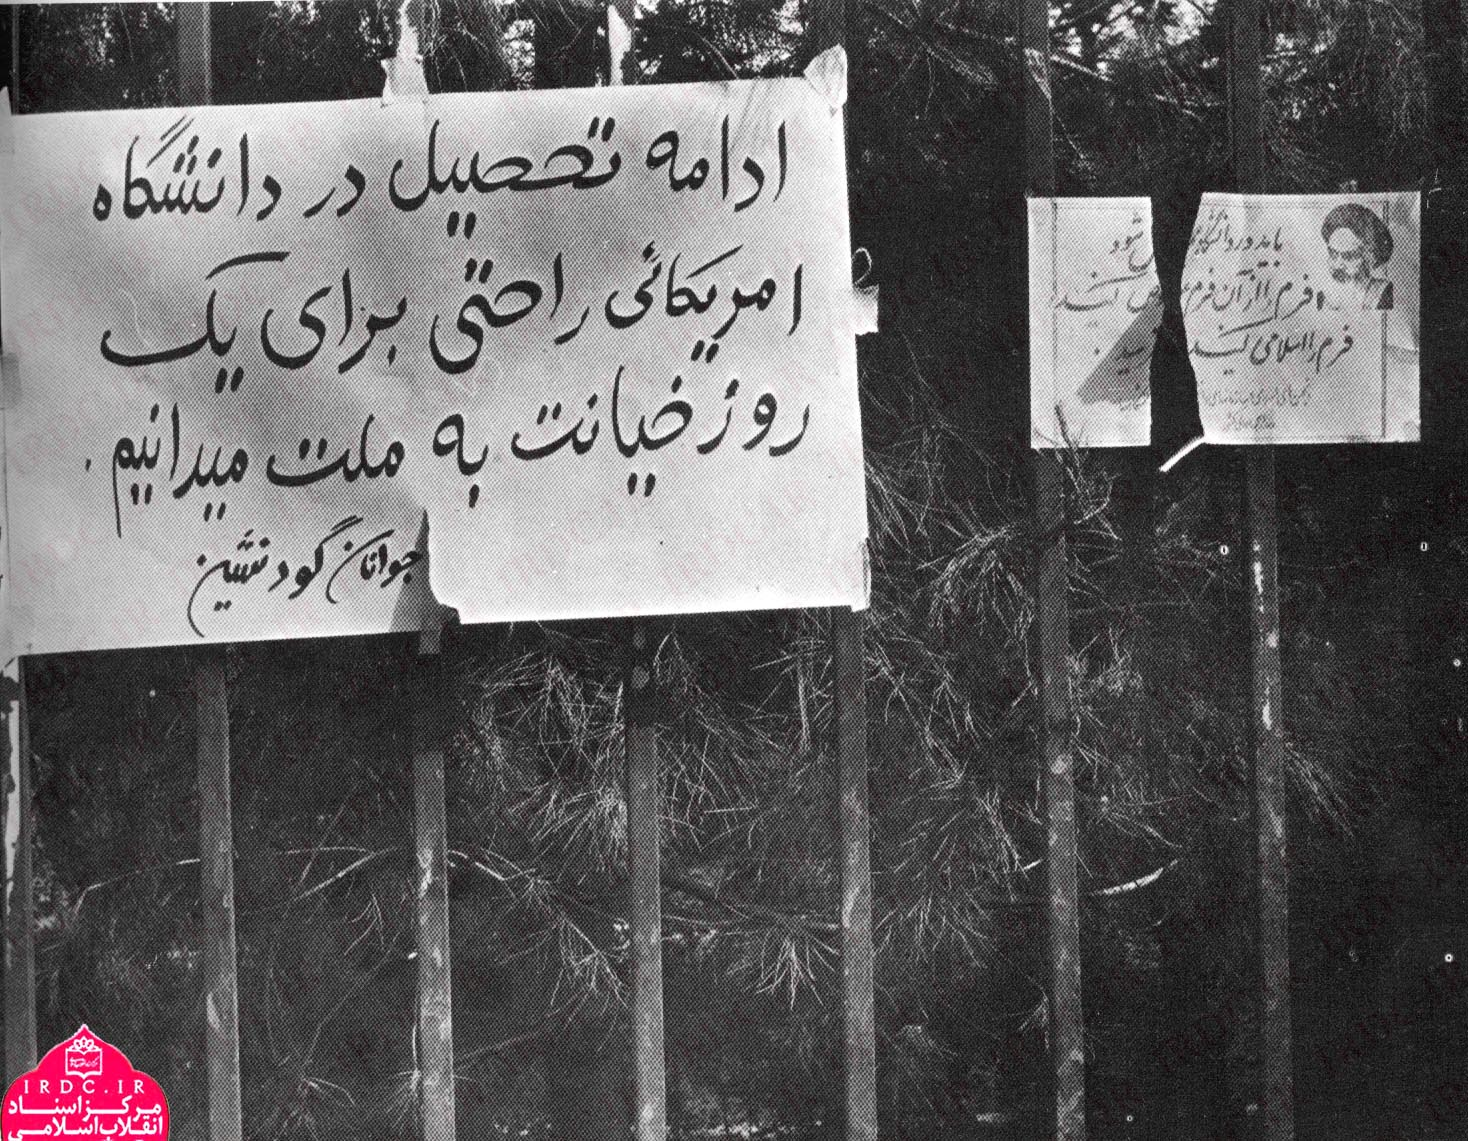 ادامه تحصیل در دانشگاه
امریکائی را حتی برای یک
روز خیانت به ملت میدانیم.
جوانان گود نشین
باید در دانشگاه شود
فرم را از آن فرم کنید
فرم را اسلامی کنید
IRDC.IR
مرکز اسناد
انقلاب اسلامی